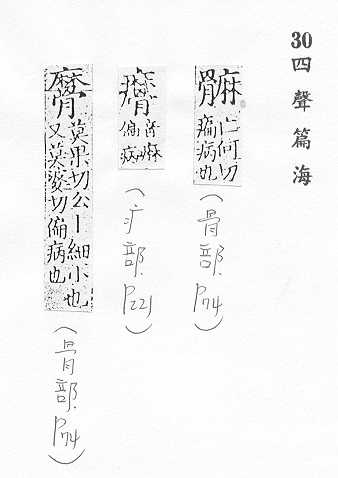 30 四聲篇海
䯢 亡何切
病也
(骨部.P74)
偏
(疒部.P221)
髍 莫果切么丨細小也
又莫婆切偏病也
(骨部.P74)